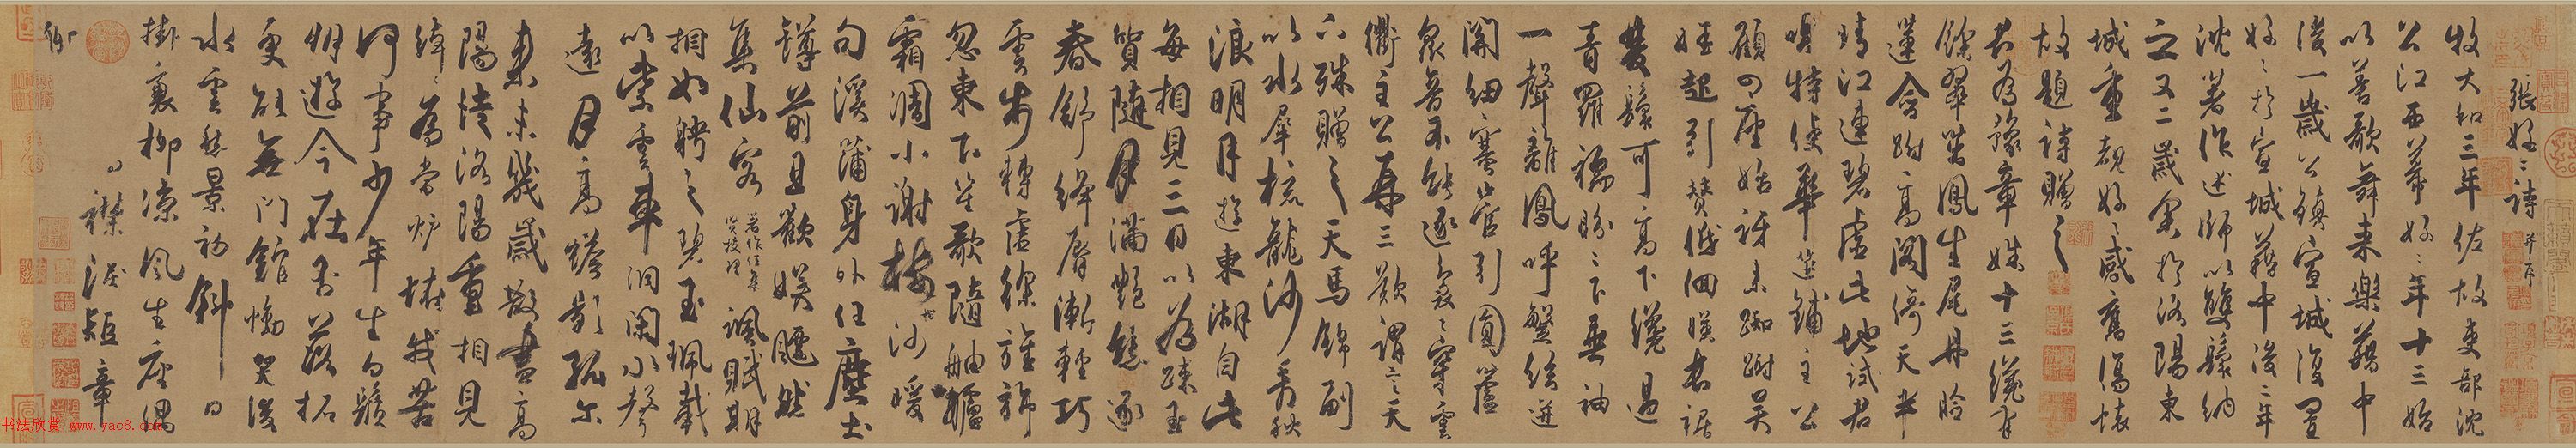 張好好詩 并序
牧大和三年佐故吏部沈
公江西幕好好年十三始
以善歌舞来樂籍中
後一歲公鎮宣城復置
好好於宣城籍中後二年
沈著作述師以雙鬟納
之又二歲余於洛陽東
城重覩好好感舊傷懷
故題詩贈之
君為豫章姝十三纔有
餘翠茁鳳生尾丹臉
蓮含跗高閣倚天半
晴江連碧虛此地試君
唱特使華筵鋪主公
顧四座始訝来踟躕吳
娃起引贊低佪暎長裾
雙鬟可高下纔過
青羅襦盼盼下垂袖
一聲離鳳呼繁絃迸
關紐塞管引圓蘆
衆音不能逐裊裊穿雲
衢主公再三歎謂言天
下殊贈之天馬錦副
以水犀梳龍沙看秋
浪明月遊東湖自此
每相見三日以為疎玉
質隨月滿艷態逐
春舒絳脣漸輕巧
雲步轉虛徐旌旆
忽東下笙歌隨舳艫
霜凋小謝樹沙暖
句溪蒲身外任塵土
罇前且歡娛飄然
集仙客 著作任集賢校理 諷賦期
相如聘之碧玉珮載
以紫雲車洞閉水聲
遠月高蟾影孤尔
来未幾歲散盡高
陽徒洛陽重相見
綽綽為當爐怪我苦
何事少年生白鬚
朋遊今在否落拓
更能無門館慟哭後
水雲愁景初斜日
掛衰柳涼風生座隅
襟淚短章
聊
书法欣赏 www.yac8.com